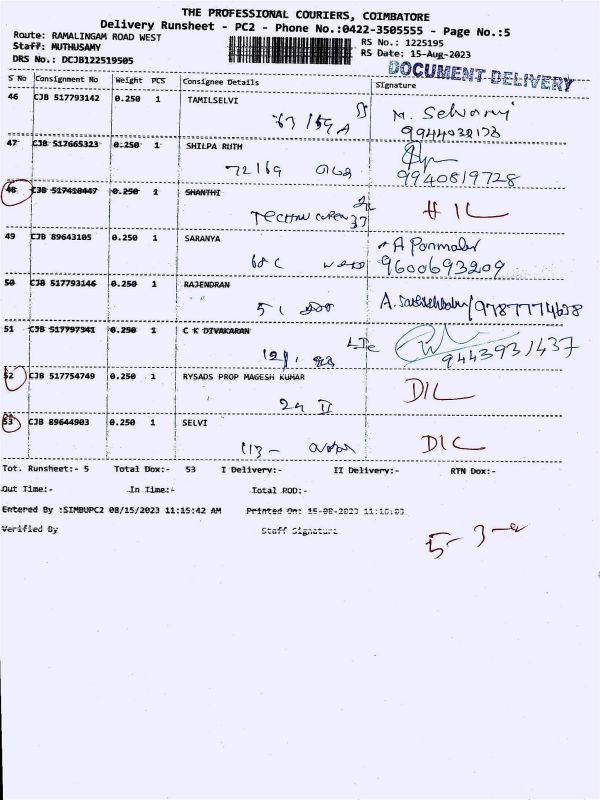 THE PROFESSIONAL COURIERS, COIMBATORE
Delivery Runsheet - PC2 - Phone No.:0422-3505555 - Page No.:5
Route: RAMALINGAM ROAD WEST RS No.: 1225195
Staff: MUTHUSAMY RS Date: 15-Aug-2023
DRS No.: DCJB122519505
DOCUMENT DELIVERY
S No Consignment No Weight PCS Consignee Details Signature
46 CJB 517793142 0.250 1 TAMILSELVI
63/69A
9944032178
47 CJB 517665323 0.250 1 SHILPA RUTH
72/69
9940819728
48 CJB 517418447 0.250 1 SHANTHI
37
49 CJB 89643105 0.250 1 SARANYA
A Ponmalar
68C
9600693209
50 CJB 517793146 0.250 1 RAJENDRAN
51
51 CJB 517797341 0.250 1 C K DIVAKARAN
9443931437
52 CJB 517754749 0.250 1 RYSADS PROP MAGESH KUMAR
DIL
53 CJB 89644903 0.250 1 SELVI
113-
Tot. Runsheet:- 5 Total Dox:- 53 I Delivery:- II Delivery:- RTN Dox:-
Out Time:- In Time:- Total ROD:-
Entered By :SIMBUPC2 08/15/2023 11:15:42 AM Printed On: 15-08-2023
Verified By Staff Signature